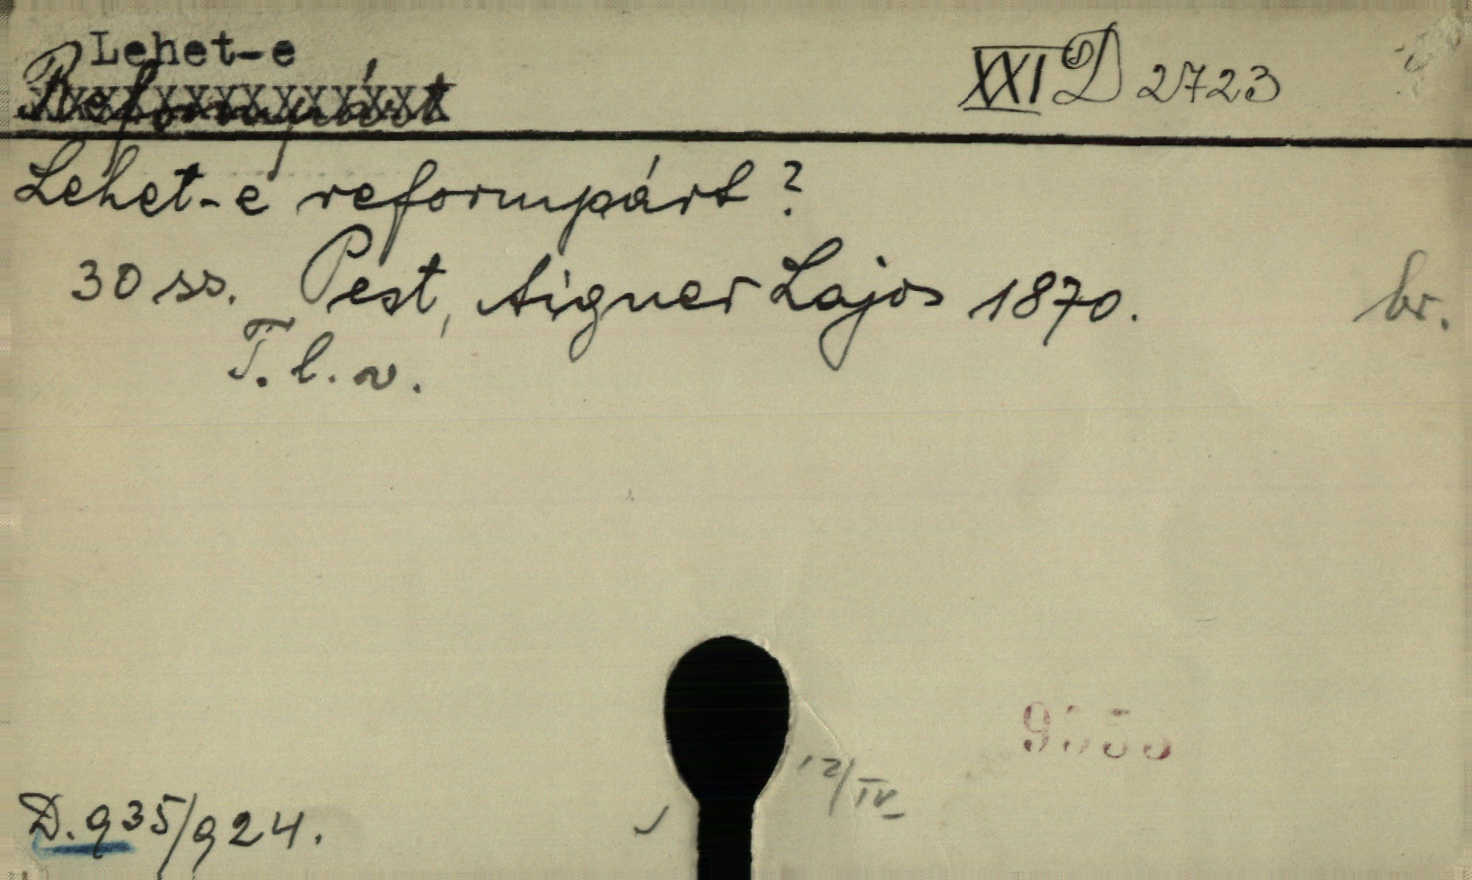 Lehet-e
Reformpárt
XXI D 2723
Lehet-e reformpárt?
30 ss. Pest, Aigner Lajos 1870. br.
T. l. v.
12/IV
D. 935/924.